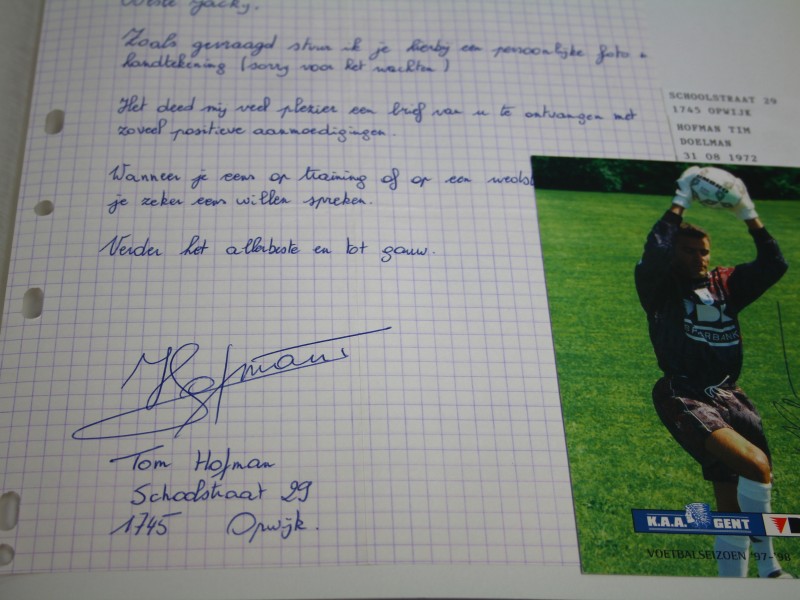 Beste Jacky.
Zoals gevraagd stuur ik je hierbij een persoonlijke foto +
handtekening (sorry voor het wachten)
Het deed mij veel plezier een brief van u te ontvangen met
zoveel positieve aanmoedigingen.
Wanneer je eens op training of op een
je zeker eens willen spreken.
Verder het allerbeste en tot gauw.
Hofman
Tom Hofman
Schoolstraat 29
1745 Opwijk.
SCHOOLSTRAAT 29
1745 OPWIJK
HOFMAN TIM
DOELMAN
31 08 1972
K.A.A. GENT
VOETBALSEIZOEN '97-'98